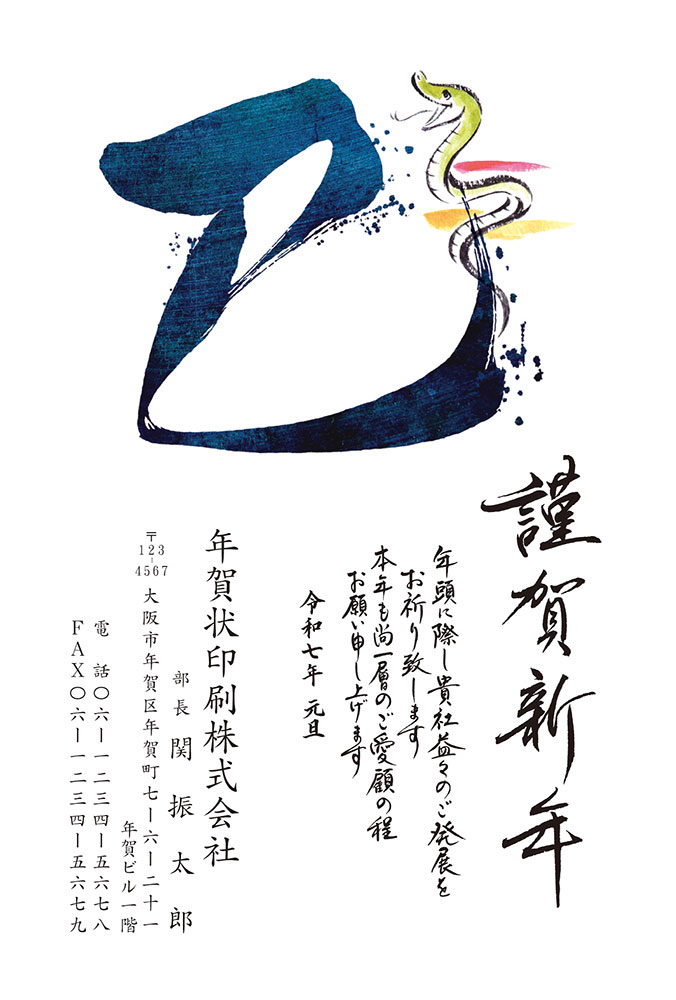 巳
謹賀新年
年頭に際し貴社益々のご発展を
お祈り致します
本年も尚一層のご愛顧の程
お願い申し上げます
令和七年 元旦
年賀状印刷株式会社
部長 関振太郎
〒123-4567
大阪市年賀区年賀町七ー六ー二十一
年賀ビル一階
電話〇六ー一二三四ー五六七八
FAX〇六ー一二三四ー五六七九